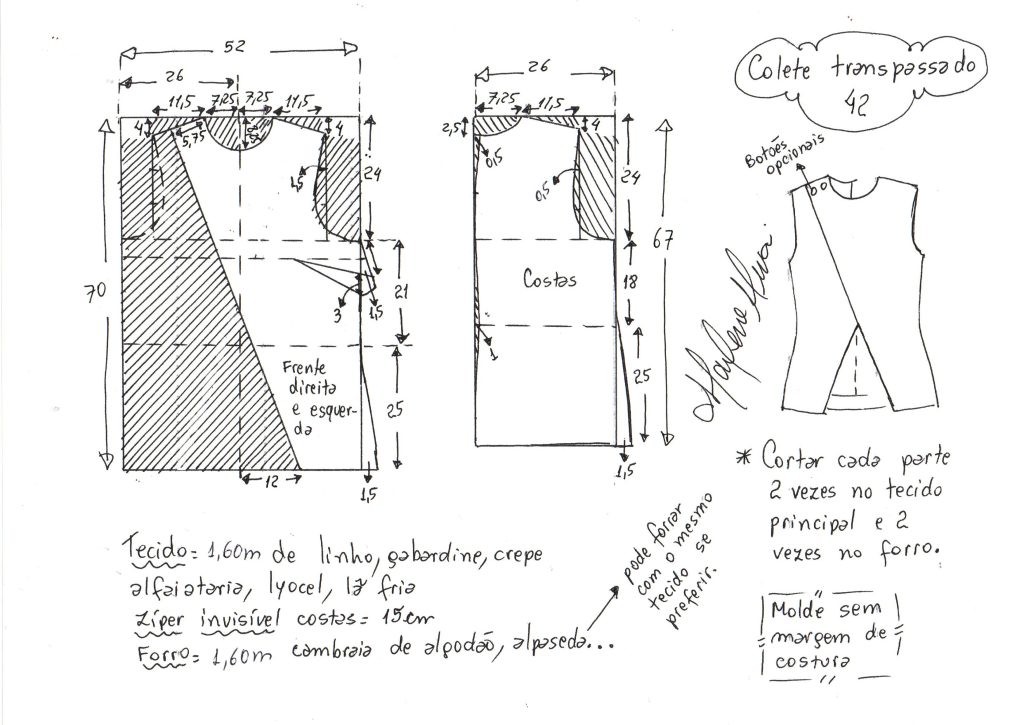 52
26
11,5 7,25 7,25 11,5
4
5,75
4
1,5
24
70
21
3
1,5
Frente
direita
e esquer-
da
25
12
1,5
26
7,25 11,5
2,5
4
0,5
0,5
24
67
Costas
18
1
25
1,5
Colete transpassado
42
Botões
opcionais
Marlene Mukai
* Cortar cada parte
2 vezes no tecido
principal e 2
vezes no forro.
Molde sem
margem de
costura
Tecido = 1,60m de linho, gabardine, crepe
alfaiataria, lyocel, lã fria
Zíper invisível costas = 15cm
Forro = 1,60m cambraia de algodão, alpaseda...
pode forrar
com o mesmo
tecido se
preferir.